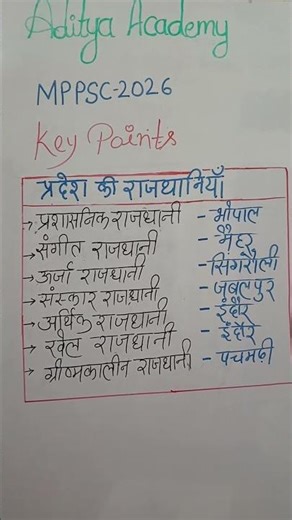 Aditya Academy
MPPSC-2026
Key Points
प्रदेश की राजधानियाँ
→ प्रशासनिक राजधानी - भोपाल
→ संगीत राजधानी - मैहर
→ ऊर्जा राजधानी - सिंगरौली
→ संस्कार राजधानी - जबलपुर
→ आर्थिक राजधानी - इंदौर
→ खेल राजधानी - इंदौर
→ ग्रीष्मकालीन राजधानी - पचमढ़ी